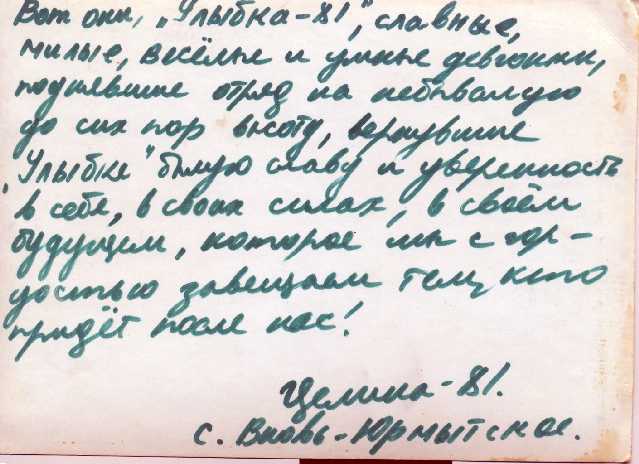 Вот они, „Улыбка-81", славные,
милые, весёлые и умные девчонки,
поднявшие отряд на небывалую
до сих пор высоту, вернувшие
„Улыбке" былую славу и уверенность
в себе, в своих силах, в своём
будущем, которое мы с гор-
достью завещаем тем, кто
придёт после нас!
Целина-81.
с. Вновь-Юрмытское.